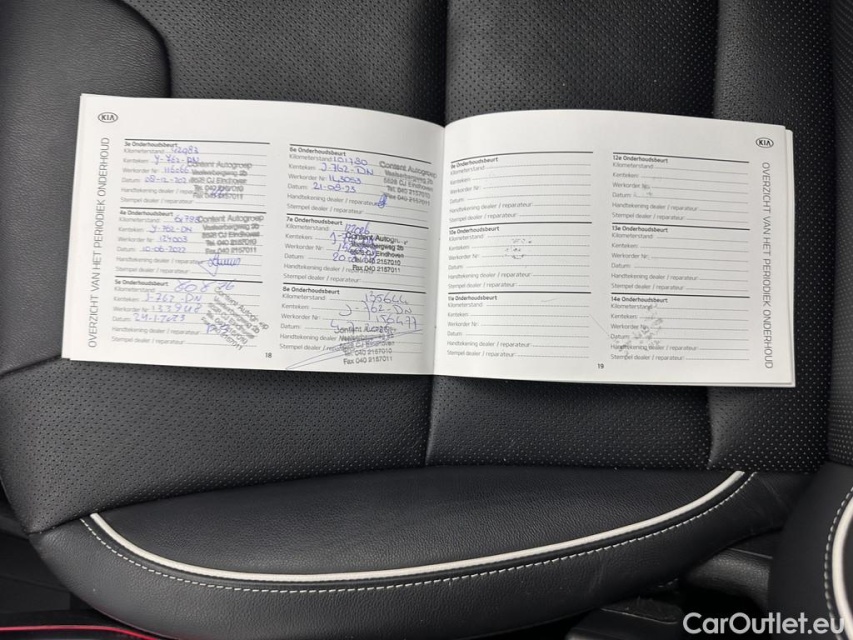 KIA
OVERZICHT VAN HET PERIODIEK ONDERHOUD
3e Onderhoudsbeurt
Kilometerstand 42983
Kenteken J-762-DN
Werkorder Nr
Datum
Handtekening dealer / reparateur
Stempel dealer / reparateur
Content Autogroep
Vestenbergweg 2b
5528 CJ Eindhoven
Tel. 040 2157010
4e Onderhoudsbeurt
Kilometerstand
Kenteken J-762-DN
Werkorder Nr
Datum
Handtekening dealer / reparateur
Stempel dealer / reparateur
Content Autogroep
Tel. 040 2157010
Fax 040 2157011
5e Onderhoudsbeurt
Kilometerstand
Kenteken J-762-DN
Werkorder Nr
Datum
Handtekening dealer / reparateur
Stempel dealer / reparateur
6e Onderhoudsbeurt
Kilometerstand 101780
Kenteken J-762-DN
Werkorder Nr 143053
Datum 21-08-23
Handtekening dealer / reparateur
Stempel dealer / reparateur
Content Autogroep
Tel. 040 2157010
Fax 040 2157011
7e Onderhoudsbeurt
Kilometerstand
Kenteken
Werkorder Nr
Datum
Handtekening dealer / reparateur
Stempel dealer / reparateur
Content Autogroep
Tel. 040 2157010
Fax 040 2157011
8e Onderhoudsbeurt
Kilometerstand 135644
Kenteken J-762-DN
Werkorder Nr 156477
Datum
Handtekening dealer / reparateur
Stempel dealer / reparateur
Tel. 040 2157010
Fax 040 2157011
18
9e Onderhoudsbeurt
Kilometerstand
Kenteken
Werkorder Nr
Datum
Handtekening dealer / reparateur
Stempel dealer / reparateur
10e Onderhoudsbeurt
Kilometerstand
Kenteken
Werkorder Nr
Datum
Handtekening dealer / reparateur
Stempel dealer / reparateur
11e Onderhoudsbeurt
Kilometerstand
Kenteken
Werkorder Nr
Datum
Handtekening dealer / reparateur
Stempel dealer / reparateur
12e Onderhoudsbeurt
Kilometerstand
Kenteken
Werkorder Nr
Datum
Handtekening dealer / reparateur
Stempel dealer / reparateur
13e Onderhoudsbeurt
Kilometerstand
Kenteken
Werkorder Nr
Datum
Handtekening dealer / reparateur
Stempel dealer / reparateur
14e Onderhoudsbeurt
Kilometerstand
Kenteken
Werkorder Nr
Datum
Handtekening dealer / reparateur
Stempel dealer / reparateur
19
KIA
OVERZICHT VAN HET PERIODIEK ONDERHOUD
CarOutlet.eu